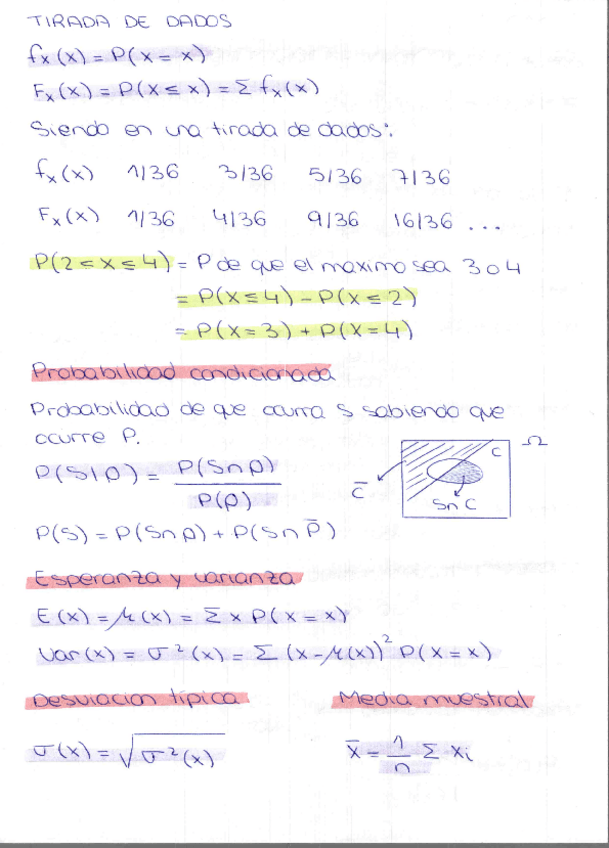 TIRADA DE DADOS
fx(x) = P(X = x)
Fx(x) = P(X ≤ x) = Σ fx(x)
Siendo en una tirada de dados:
fx(x) 1/36 3/36 5/36 7/36
Fx(x) 1/36 4/36 9/36 16/36 ...
P(2 < X ≤ 4) = P de que el maximo sea 3 o 4
= P(X ≤ 4) - P(X ≤ 2)
= P(X = 3) + P(X = 4)
Probabilidad condicionada
Probabilidad de que ocurra S sabiendo que
ocurre P.
P(S|P) = P(S∩P) / P(P)
C Ω
C̄
S∩C
P(S) = P(S∩P) + P(S∩P̄)
Esperanza y varianza
E(x) = μ(x) = Σ x P(X = x)
Var(x) = σ²(x) = Σ (x-μ(x))² P(X = x)
Desviacion típica Media muestral
σ(x) = √σ²(x) x̄ = 1/n Σ xi